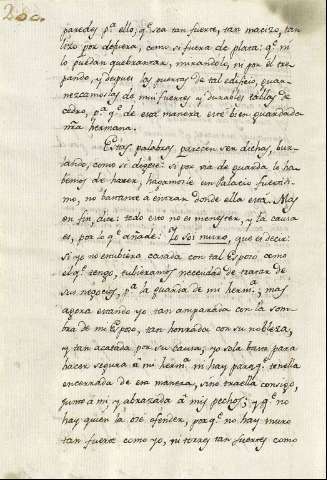 paredes pª ello; qᵉ sea tan fuerte, tan macizo, tan
liso por defuera, como si fuera de plata: qᵉ ni
lo puedan quebrantar, minandole, ni por el tre-
pando, y despues las puertas de tal edificio, guar-
nezcamoslas de mui fuertes y durables tablas de
cedro, pª qᵉ de esta manera esté bien guardada
ntra hermana.
Estas palabras parecen ser dichas, bur-
lando, como si dixese: si por via de guarda lo ha-
bemos de hacer, hagamosle un Palacio fuertisi-
mo, no bastante a entrar donde ella está. Mas
en fin, dice: todo esto no es menester, y la causa
es, por lo qᵉ añade: Yo soi muro, que es decir:
si yo no estubiera casada con tal Esposo como
el qᵉ tengo, tubieramos necesidad de tratar de
sus negocios, pª la guarda de mi hermª; mas
agora estando yo tan amparada con la som-
bra de mi Esposo, tan honrrada con su nobleza,
y tan acatada por su causa, yo sola basto para
hacer segura á mi hermª ni hay paraqᵉ tenella
encerrada de esa manera, sino traella consigo,
junto á mí, y abrazada á mis pechos; y qᵉ no
hay quien la ose ofender, porqᵉ no hay muro
tan fuerte como yo, ni torres tan fuertes como